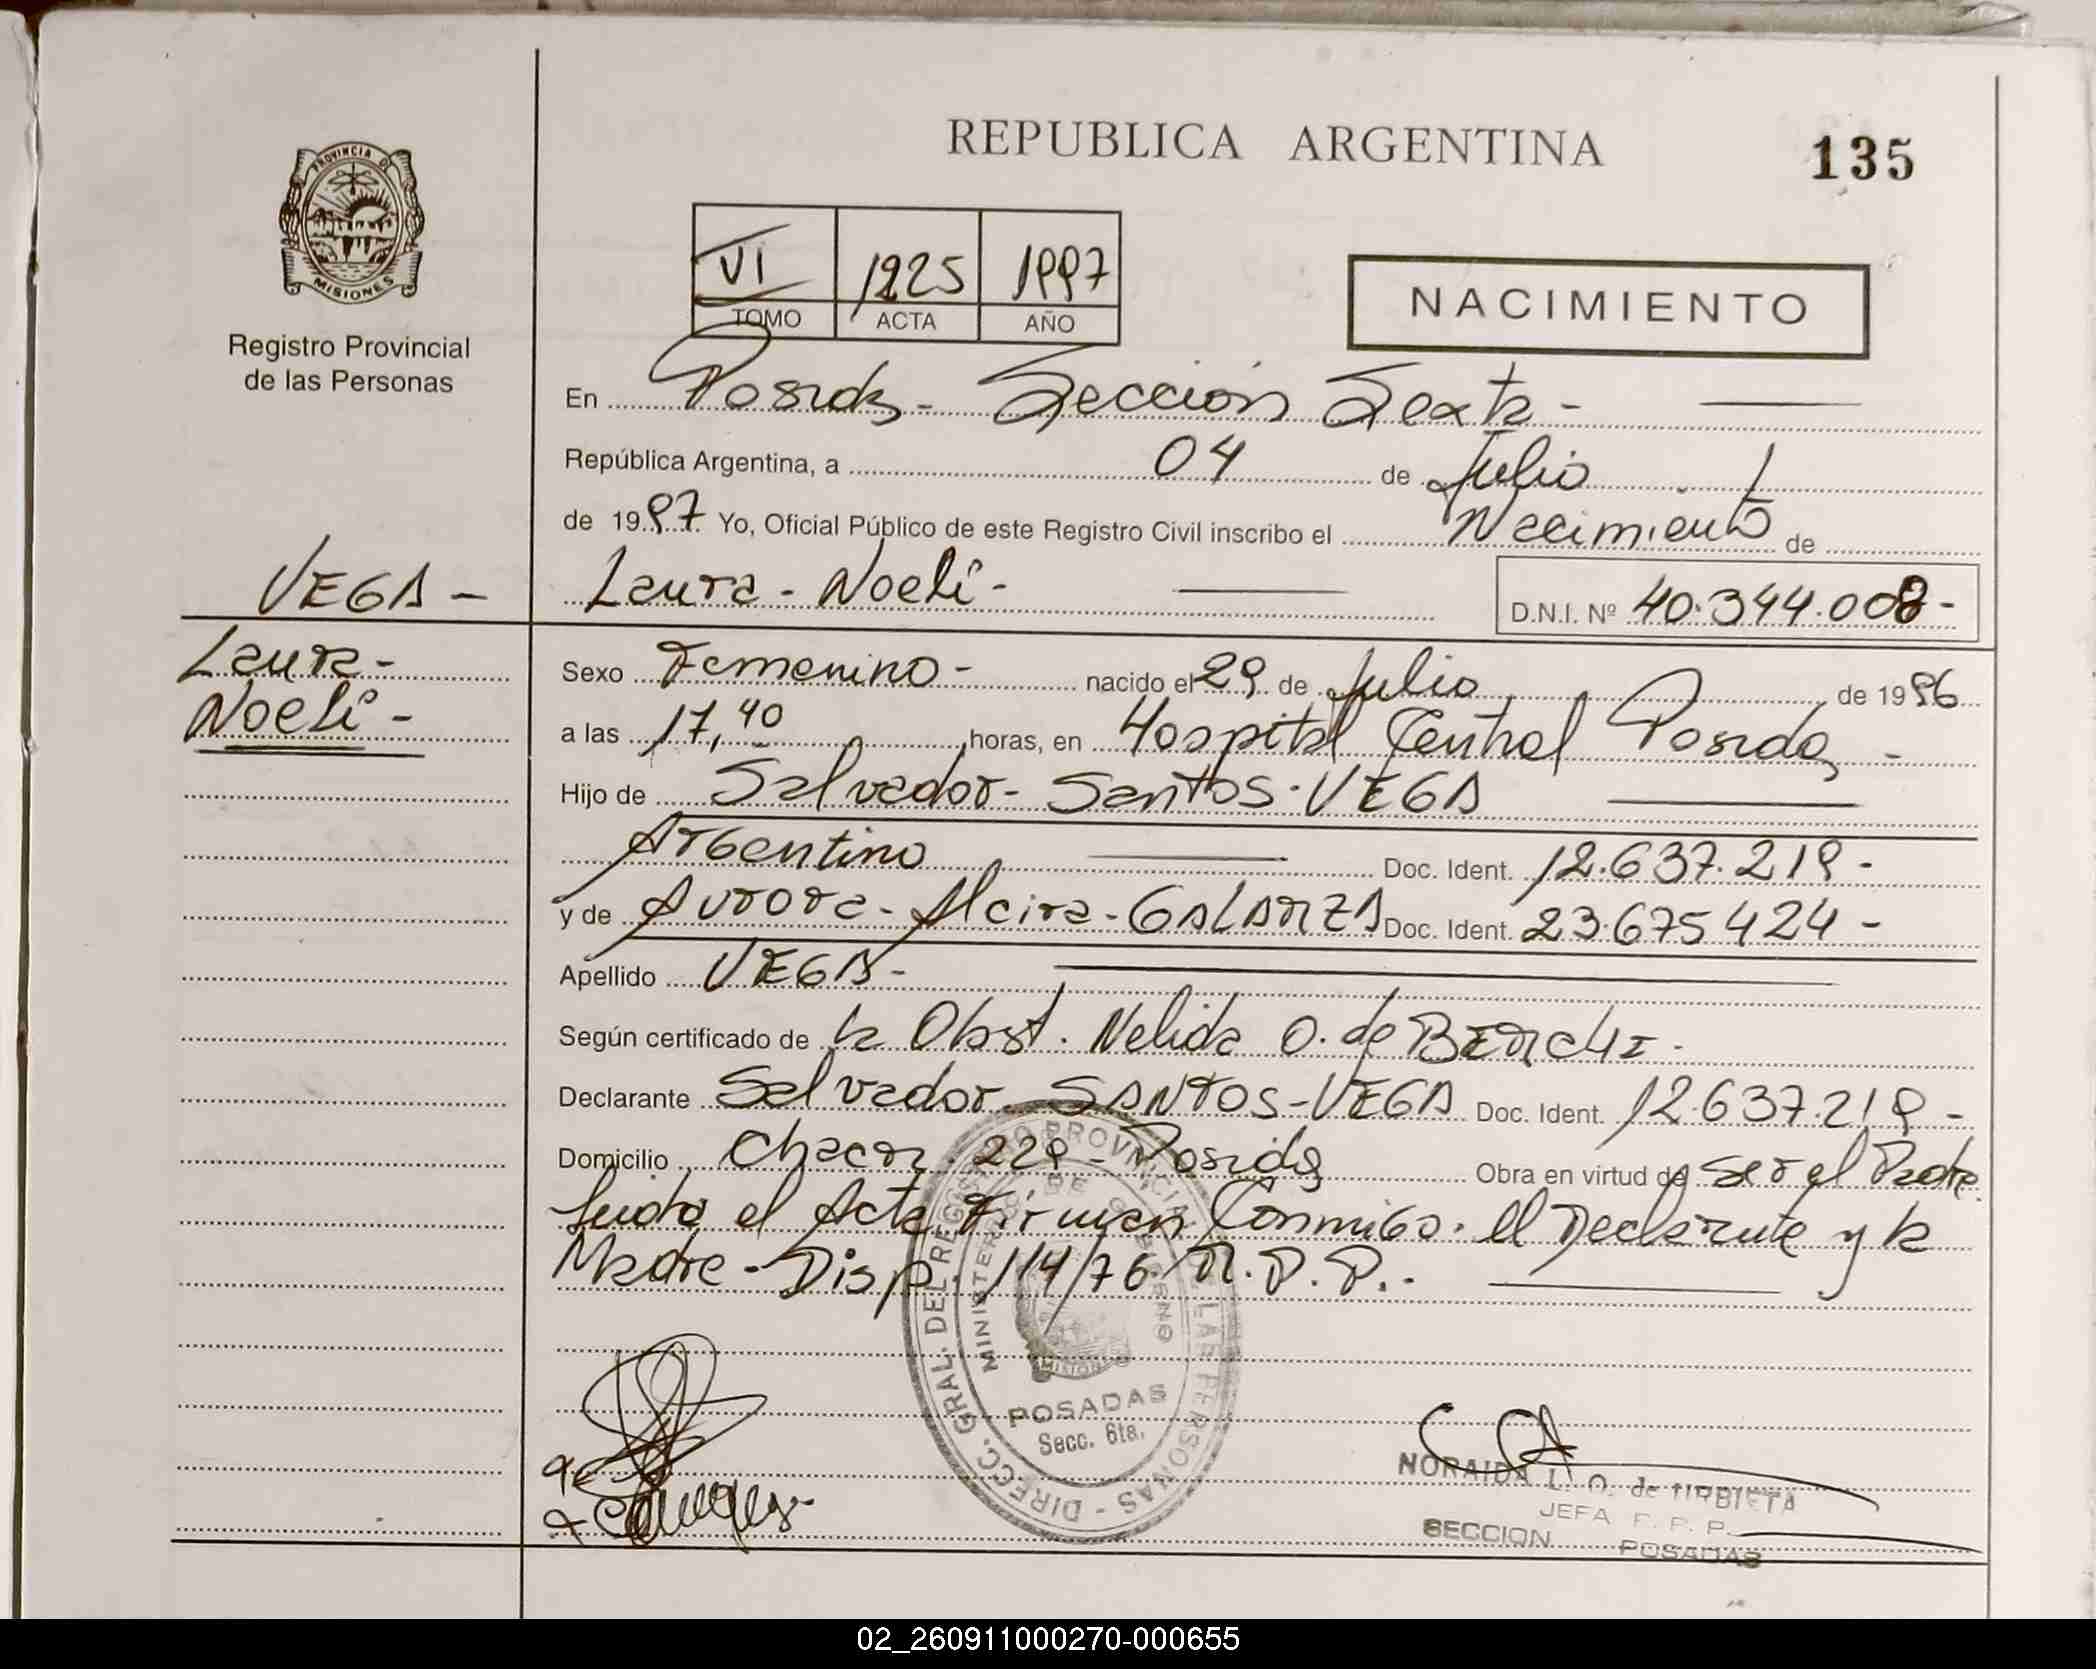 REPUBLICA ARGENTINA
135
PROVINCIA DE
MISIONES
Registro Provincial
de las Personas
VI 1225 1997
TOMO ACTA AÑO
NACIMIENTO
En Posadas - Sección Sexta -
República Argentina, a 04 de Julio
de 1997 Yo, Oficial Público de este Registro Civil inscribo el Nacimiento de
VEGA -
Laura - Noelí -
D.N.I. Nº 40.344.008 -
Laura -
Noelí -
Sexo Femenino - nacido el 29 de Julio de 1996
a las 17,40 horas, en Hospital Central Posadas -
Hijo de Salvador - Santos - VEGA
Argentino Doc. Ident. 12.637.219 -
y de Aurora - Alcira - GALARZA Doc. Ident. 23.675424 -
Apellido VEGA -
Según certificado de la Obst. Nelida O. de BERCHI -
Declarante Salvador SANTOS - VEGA Doc. Ident. 12.637.219 -
Domicilio Chacra 229 - Posadas Obra en virtud de Ser el Padre
Leida el Acta Firman Conmigo. el Declarante y la
Madre - Disp. 114/76. R.P.P. -
DIRECC. GRAL. DEL REGISTRO PROVINCIAL DE LAS PERSONAS -
MINISTERIO DE GOBIERNO
POSADAS
Secc. 6ta.
NORAIDA L. O. de URBIETA
JEFA R. P. P.
SECCION POSADAS
02_260911000270-000655